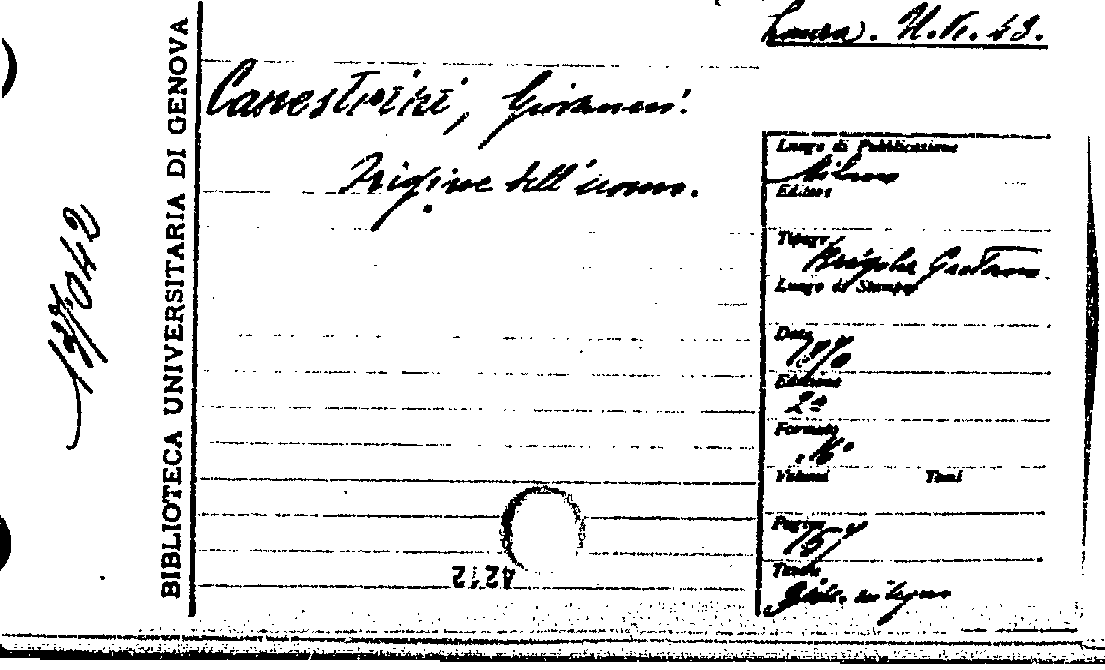 Laura. U. VI. 43.
Canestrini, Giovanni.
Origine dell'uomo.
BIBLIOTECA UNIVERSITARIA DI GENOVA
Luogo di Pubblicazione
Milano
Editore
Tipogr.
Brigola Gaetano
Luogo di Stampa
Data
1870
Edizione
2ª
Formato
16°
Volumi Tomi
Pagine
157
Tavole
in legno
4212